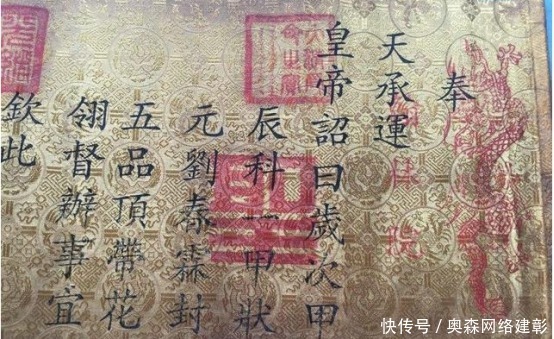 奉
天承運
皇帝詔曰歲次甲
辰科一甲狀
元劉春霖封
五品頂帶花
翎督辦事宜
欽此
快传号／奥森网络建彰